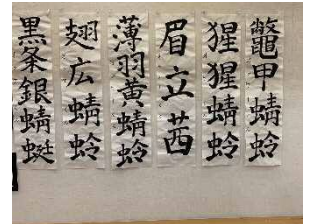 鼈甲蜻蛉
猩猩蜻蛉
眉立茜
薄羽黄蜻蛉
翅広蜻蛉
黒条銀蜻蜓